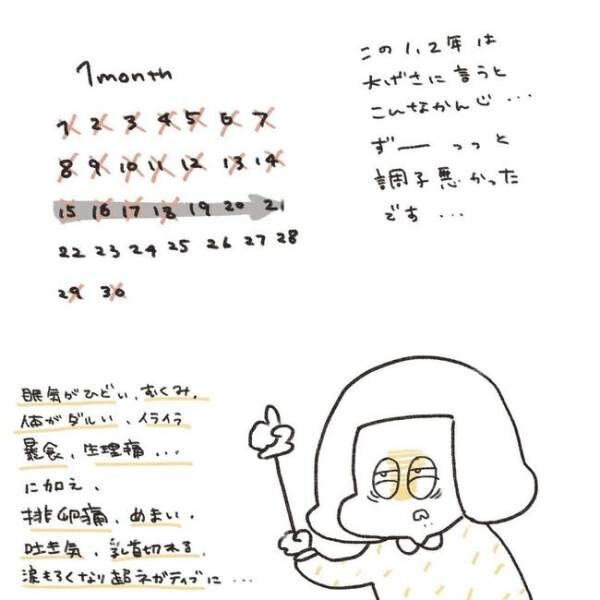 1 month
1 2 3 4 5 6 7
8 9 10 11 12 13 14
15 16 17 18 19 20 21
22 23 24 25 26 27 28
29 30
この1,2年は
大げさに言うと
こんなかんじ...
ずーーっっと
調子悪かった
です...
眠気がひどい、むくみ、
体がダルい、イライラ
暴食、生理痛...
に加え、
排卵痛、めまい、
吐き気、乳首切れる、
涙もろくなり超ネガティブに...